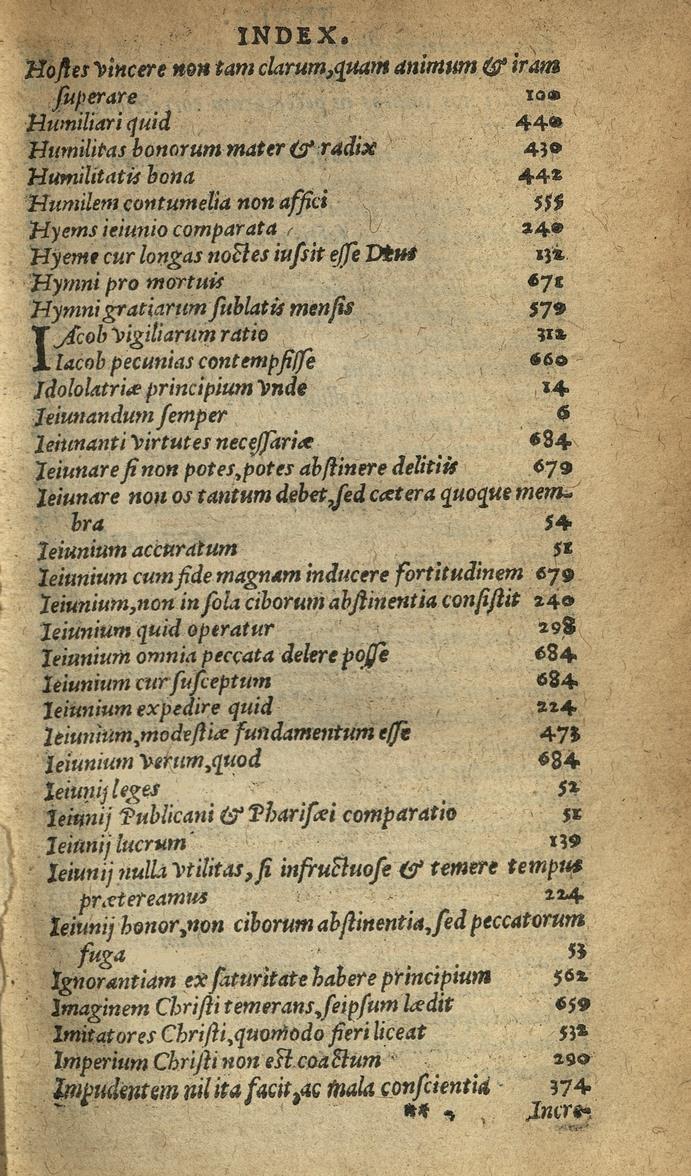 INDEX.
Hoſtes vincere non tam clarum, quam animum & iram
ſuperare 100
Humiliari quid 440
Humilitas bonorum mater & radix 430
Humilitatis bona 442
Humilem contumelia non affici 555
Hyems ieiunio comparata 240
Hyeme cur longas noctes iuſsit eſſe Deus 132
Hymni pro mortuis 671
Hymni gratiarum ſublatis menſis 579
IAcob vigiliarum ratio 312
Iacob pecunias contempſiſſe 660
Idololatriæ principium vnde 14
Ieiunandum ſemper 6
Ieiunanti virtutes neceſſariæ 684
Ieiunare ſi non potes, potes abſtinere delitiis 679
Ieiunare non os tantum debet, ſed cætera quoque mem-
bra 54
Ieiunium accuratum 51
Ieiunium cum fide magnam inducere fortitudinem 679
Ieiunium, non in ſola ciborum abſtinentia conſiſtit 240
Ieiunium quid operatur 298
Ieiunium omnia peccata delere poſſe 684
Ieiunium cur ſuſceptum 684
Ieiunium expedire quid 224
Ieiunium, modeſtiæ fundamentum eſſe 473
Ieiunium verum, quod 684
Ieiunij leges 52
Ieiunij Publicani & Phariſæi comparatio 51
Ieiunij lucrum 139
Ieiunij nulla vtilitas, ſi infructuoſe & temere tempus
prætereamus 224
Ieiunij honor, non ciborum abſtinentia, ſed peccatorum
fuga 53
Ignorantiam ex ſaturitate habere principium 562
Imaginem Chriſti temerans, ſeipſum lædit 659
Imitatores Chriſti, quomodo fieri liceat 532
Imperium Chriſti non eſt coactum 290
Impudentem nil ita facit, ac mala conſcientia 374
** Incre-